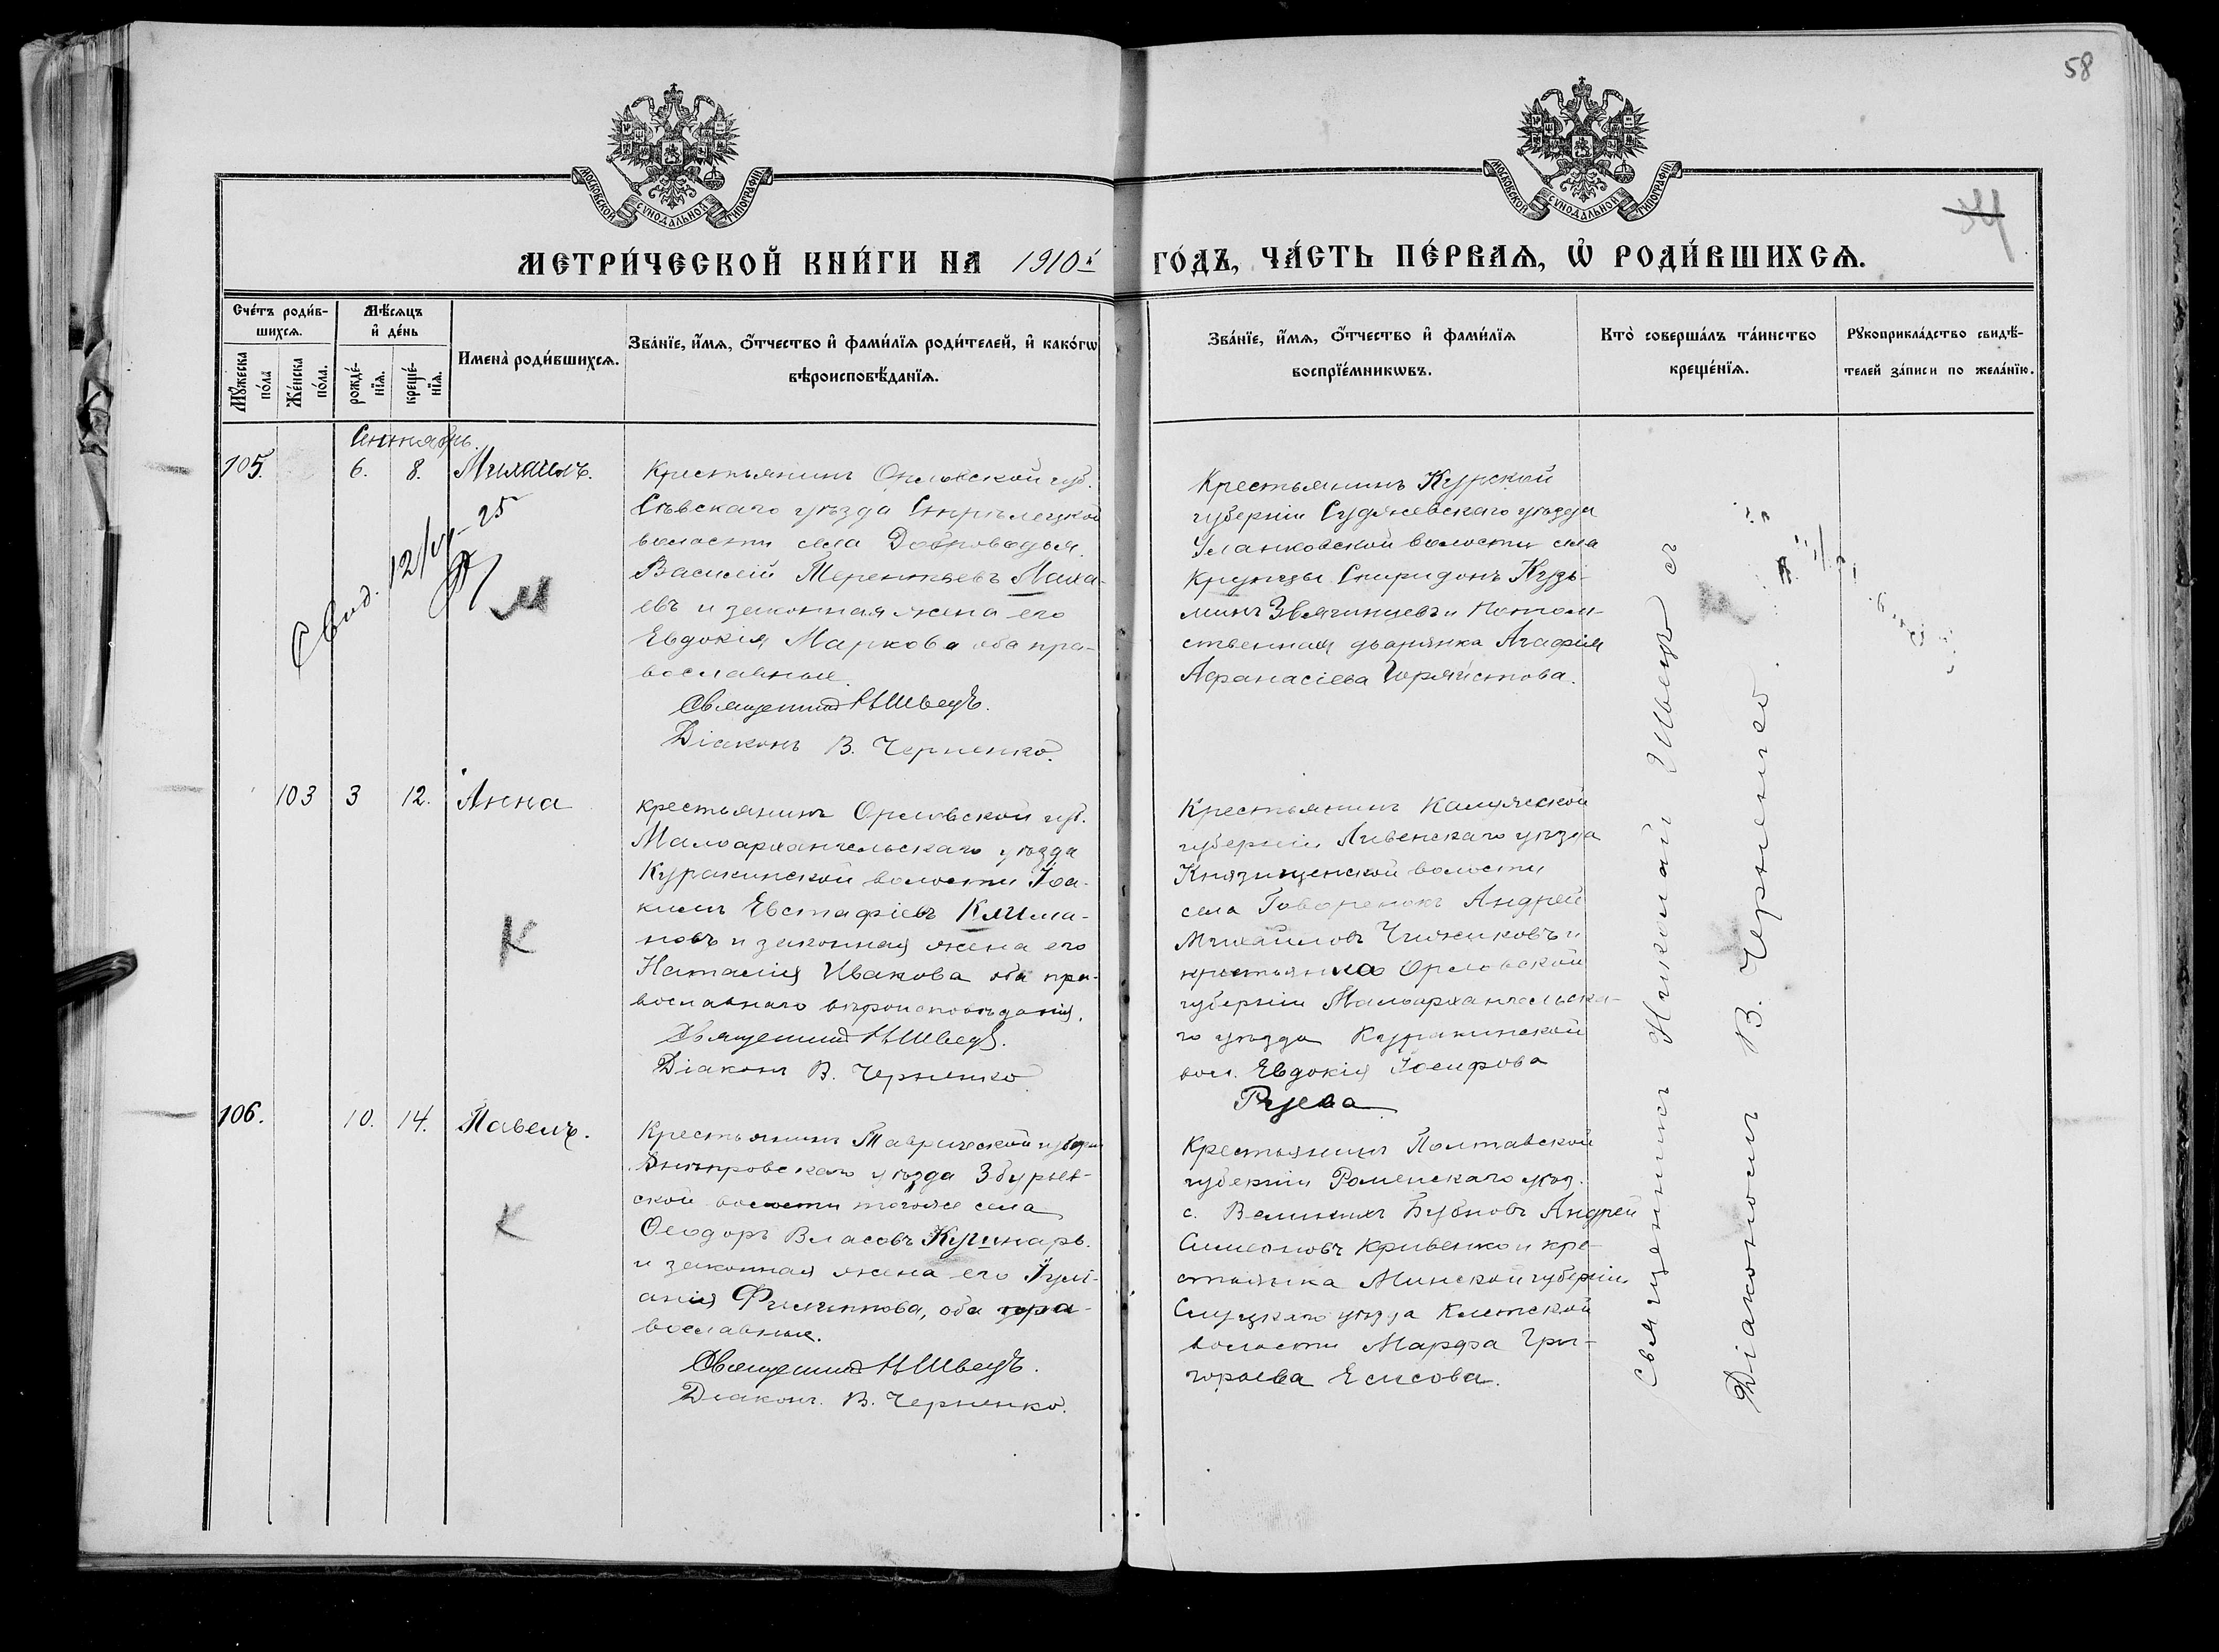 58
МОСКОВСКОЙ СѴНОДАЛЬНОЙ ТИПОГРАФІИ
МОСКОВСКОЙ СѴНОДАЛЬНОЙ ТИПОГРАФІИ
МЕТРИ́ЧЕСКОЙ КНИ́ГИ НА 1910й
ГО́ДЪ, ЧА́СТЬ ПЕ́РВАѦ, Ѡ҆ РОДИ́ВШИХСѦ.
Сче́тъ роди́в-
шихсѧ.
Мꙋ́жеска
по́ла
Же́нска
по́ла.
Мѣ́сѧцъ
и҆ де́нь
рожде́-
нїѧ.
креще́-
нїѧ.
Имена̀ роди́вшихсѧ.
Зва́нїе, и҆́мѧ, ѻ҆́тчество и҆ фами́лїѧ роди́телей, и҆ како́гѡ
вѣроисповѣ́данїѧ.
Зва́нїе, и҆́мѧ, ѻ҆́тчество и҆ фами́лїѧ
воспрїе́мникѡвъ.
Кто̀ соверша́лъ та́инство
креще́нїѧ.
Рꙋкоприкла́дство свидѣ́-
телей за́писи по жела́нїю.
Сентябрь.
105. 6. 8. Михаилъ.
Свид. 12/IV-25
М
Крестьянинъ Орловской губ.
Сѣвскаго уѣзда Стрѣлецкой
волости села Доброводья.
Василій Терентьевъ Лаха-
евъ и законная жена его
Евдокія Маркова оба пра-
вославные.
Священникъ Н Швецъ.
Діаконъ В. Черненко.
Крестьянинъ Курской
губерніи Суджевскаго уѣзда
Уланковской волости села
Крупцы Спиридонъ Кузь-
минъ Звягинцевъ и Потом-
ственная дворянка Агафія
Афанасіева
103 3 12. Анна
К
крестьянинъ Орловской губ.
Малоархангельскаго уѣзда
Куракинской волости Іоа-
кимъ Евстафіевъ Клима-
новъ и законная жена его
Наталія Иванова оба пра-
вославнаго вѣроисповѣданія.
Священникъ Н Швецъ.
Діаконъ В. Черненко
Крестьянинъ Калужской
губерніи Ливенскаго уѣзда
Князищенской волости
села Андрей
Михайловъ Чижиковъ и
крестьянка Орловской
губерніи Малоархангельска-
го уѣзда Куракинской
вол. Евдокія Іосифова
106. 10. 14. Павелъ.
К
Крестьянинъ Таврической губерн
Днѣпровскаго уѣзда Збурьев-
ской волости тогоже села
Ѳеодоръ Власовъ Кушнарь.
и законная жена его Іулі-
анія Филиппова, оба пра-
вославные.
Священникъ Н Швецъ.
Діаконъ. В. Черненко.
Крестьянинъ Полтавской
губерніи Роменскаго уѣз.
с. Великихъ Бубновъ Андрей
Симеоновъ Кривенко и кре-
стьянка Минской губерніи
Слуцкаго уѣзда Клетской
волости Марфа Гри-
горьева Елисова.
Священникъ Николай Швецъ съ
Діакономъ В. Черненко.